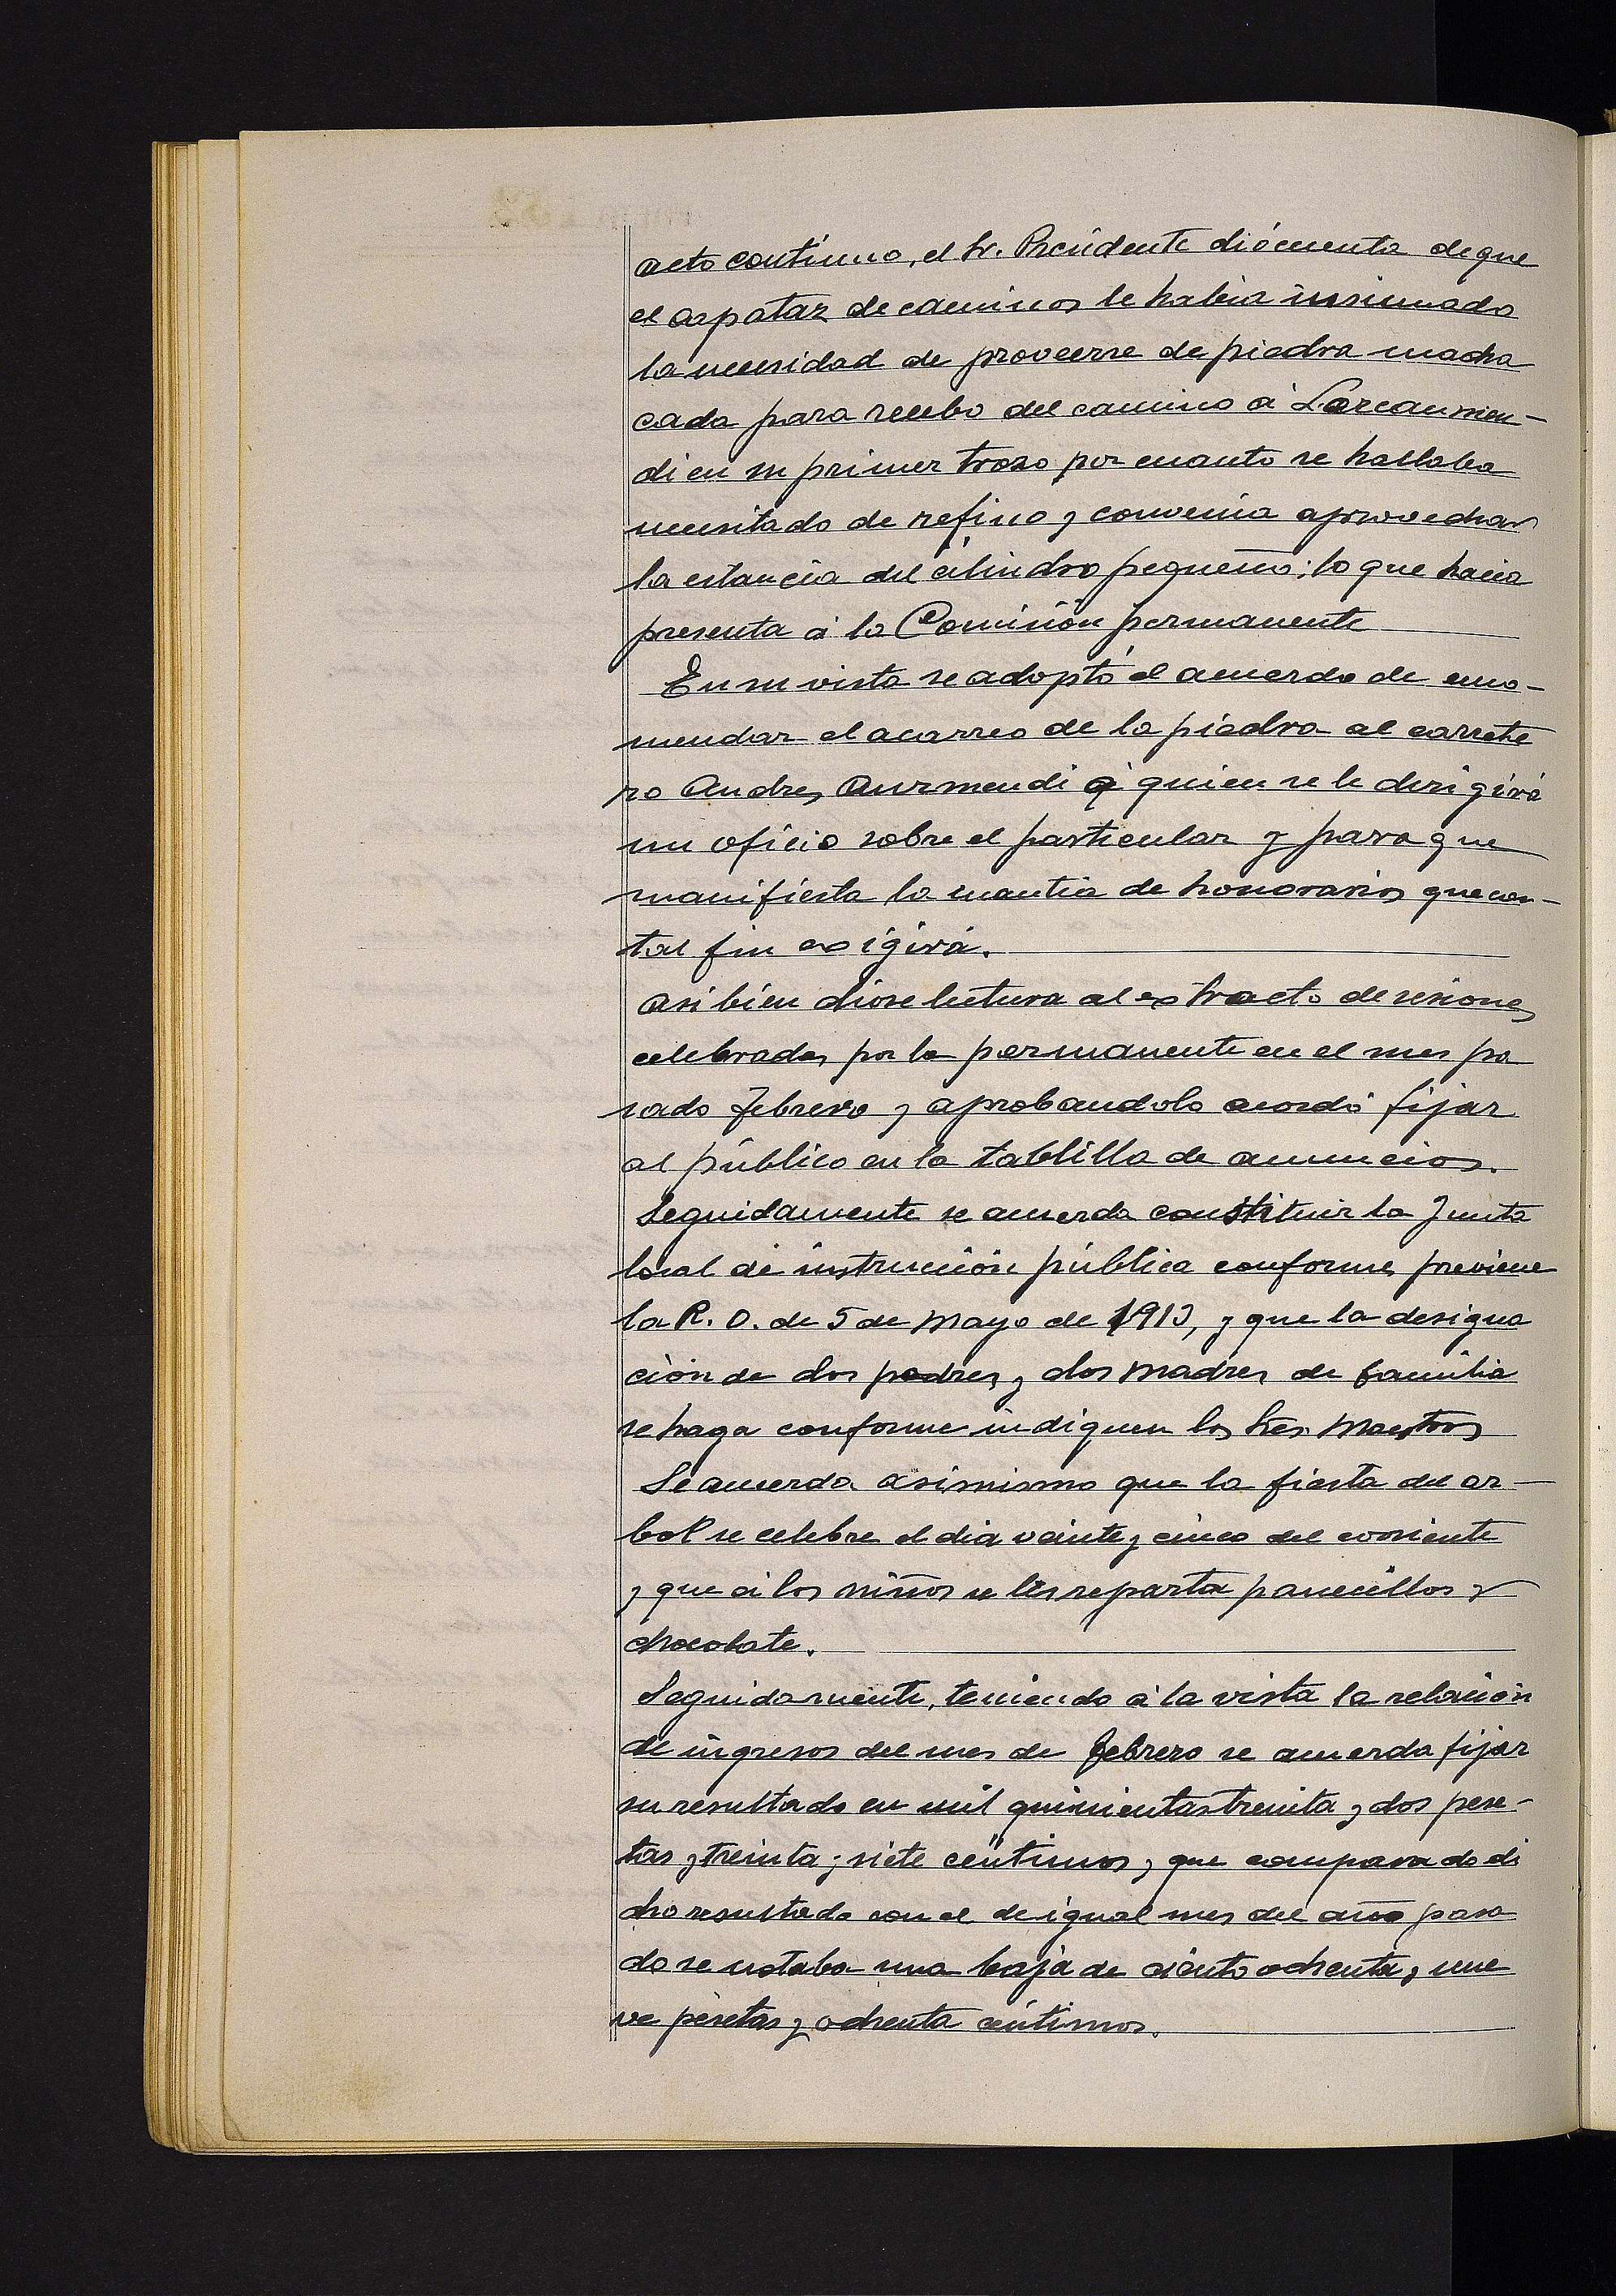 acto contínuo, el Sr. Presidente dió cuenta de que
el capataz de caminos le había insinuado
la necesidad de proveerse de piedra macha
cada para recebo del camino á Larcaumen-
di en su primer trozo por cuanto se hallaba
necesitado de refino y convenia aprovechar
la estancia del cilindro pequeño; lo que hacia
presente á la Comisión permanente
En su vista se adoptó el acuerdo de enco-
mendar el acarreo de la piedra al carrete
ro Andres Aurmendi á quien se le dirigirá
un oficio sobre el particular y para que
manifieste la cuantia de honorarios que con-
tal fin exigirá.
Asi bien diose lectura al extracto de sesiones
celebradas por la permanente en el mes pa
sado febrero y aprobandolo acordó fijar
al público en la tablilla de anuncios.
Seguidamente se acuerda constituir la Junta
local de instrucción pública conforme previene
la R. O. de 5 de Mayo de 1913, y que la designa
ción de dos padres y dos madres de familia
se haga conforme indiquen los Sres. Maestros
Se acuerda asimismo que la fiesta del ar-
bol se celebre el dia veinte y cinco del corriente
y que á los niños se les reparta panecillos y
chocolate.
Seguidamente, teniendo á la vista la relación
de ingresos del mes de febrero se acuerda fijar
su resultado en mil quinientas treinta y dos pese-
tas y treinta y siete céntimos, y que comparado di
cho resultado con el de igual mes del año pasa
do se notaba una baja de ciento ochenta y nue
ve pesetas y ochenta céntimos.